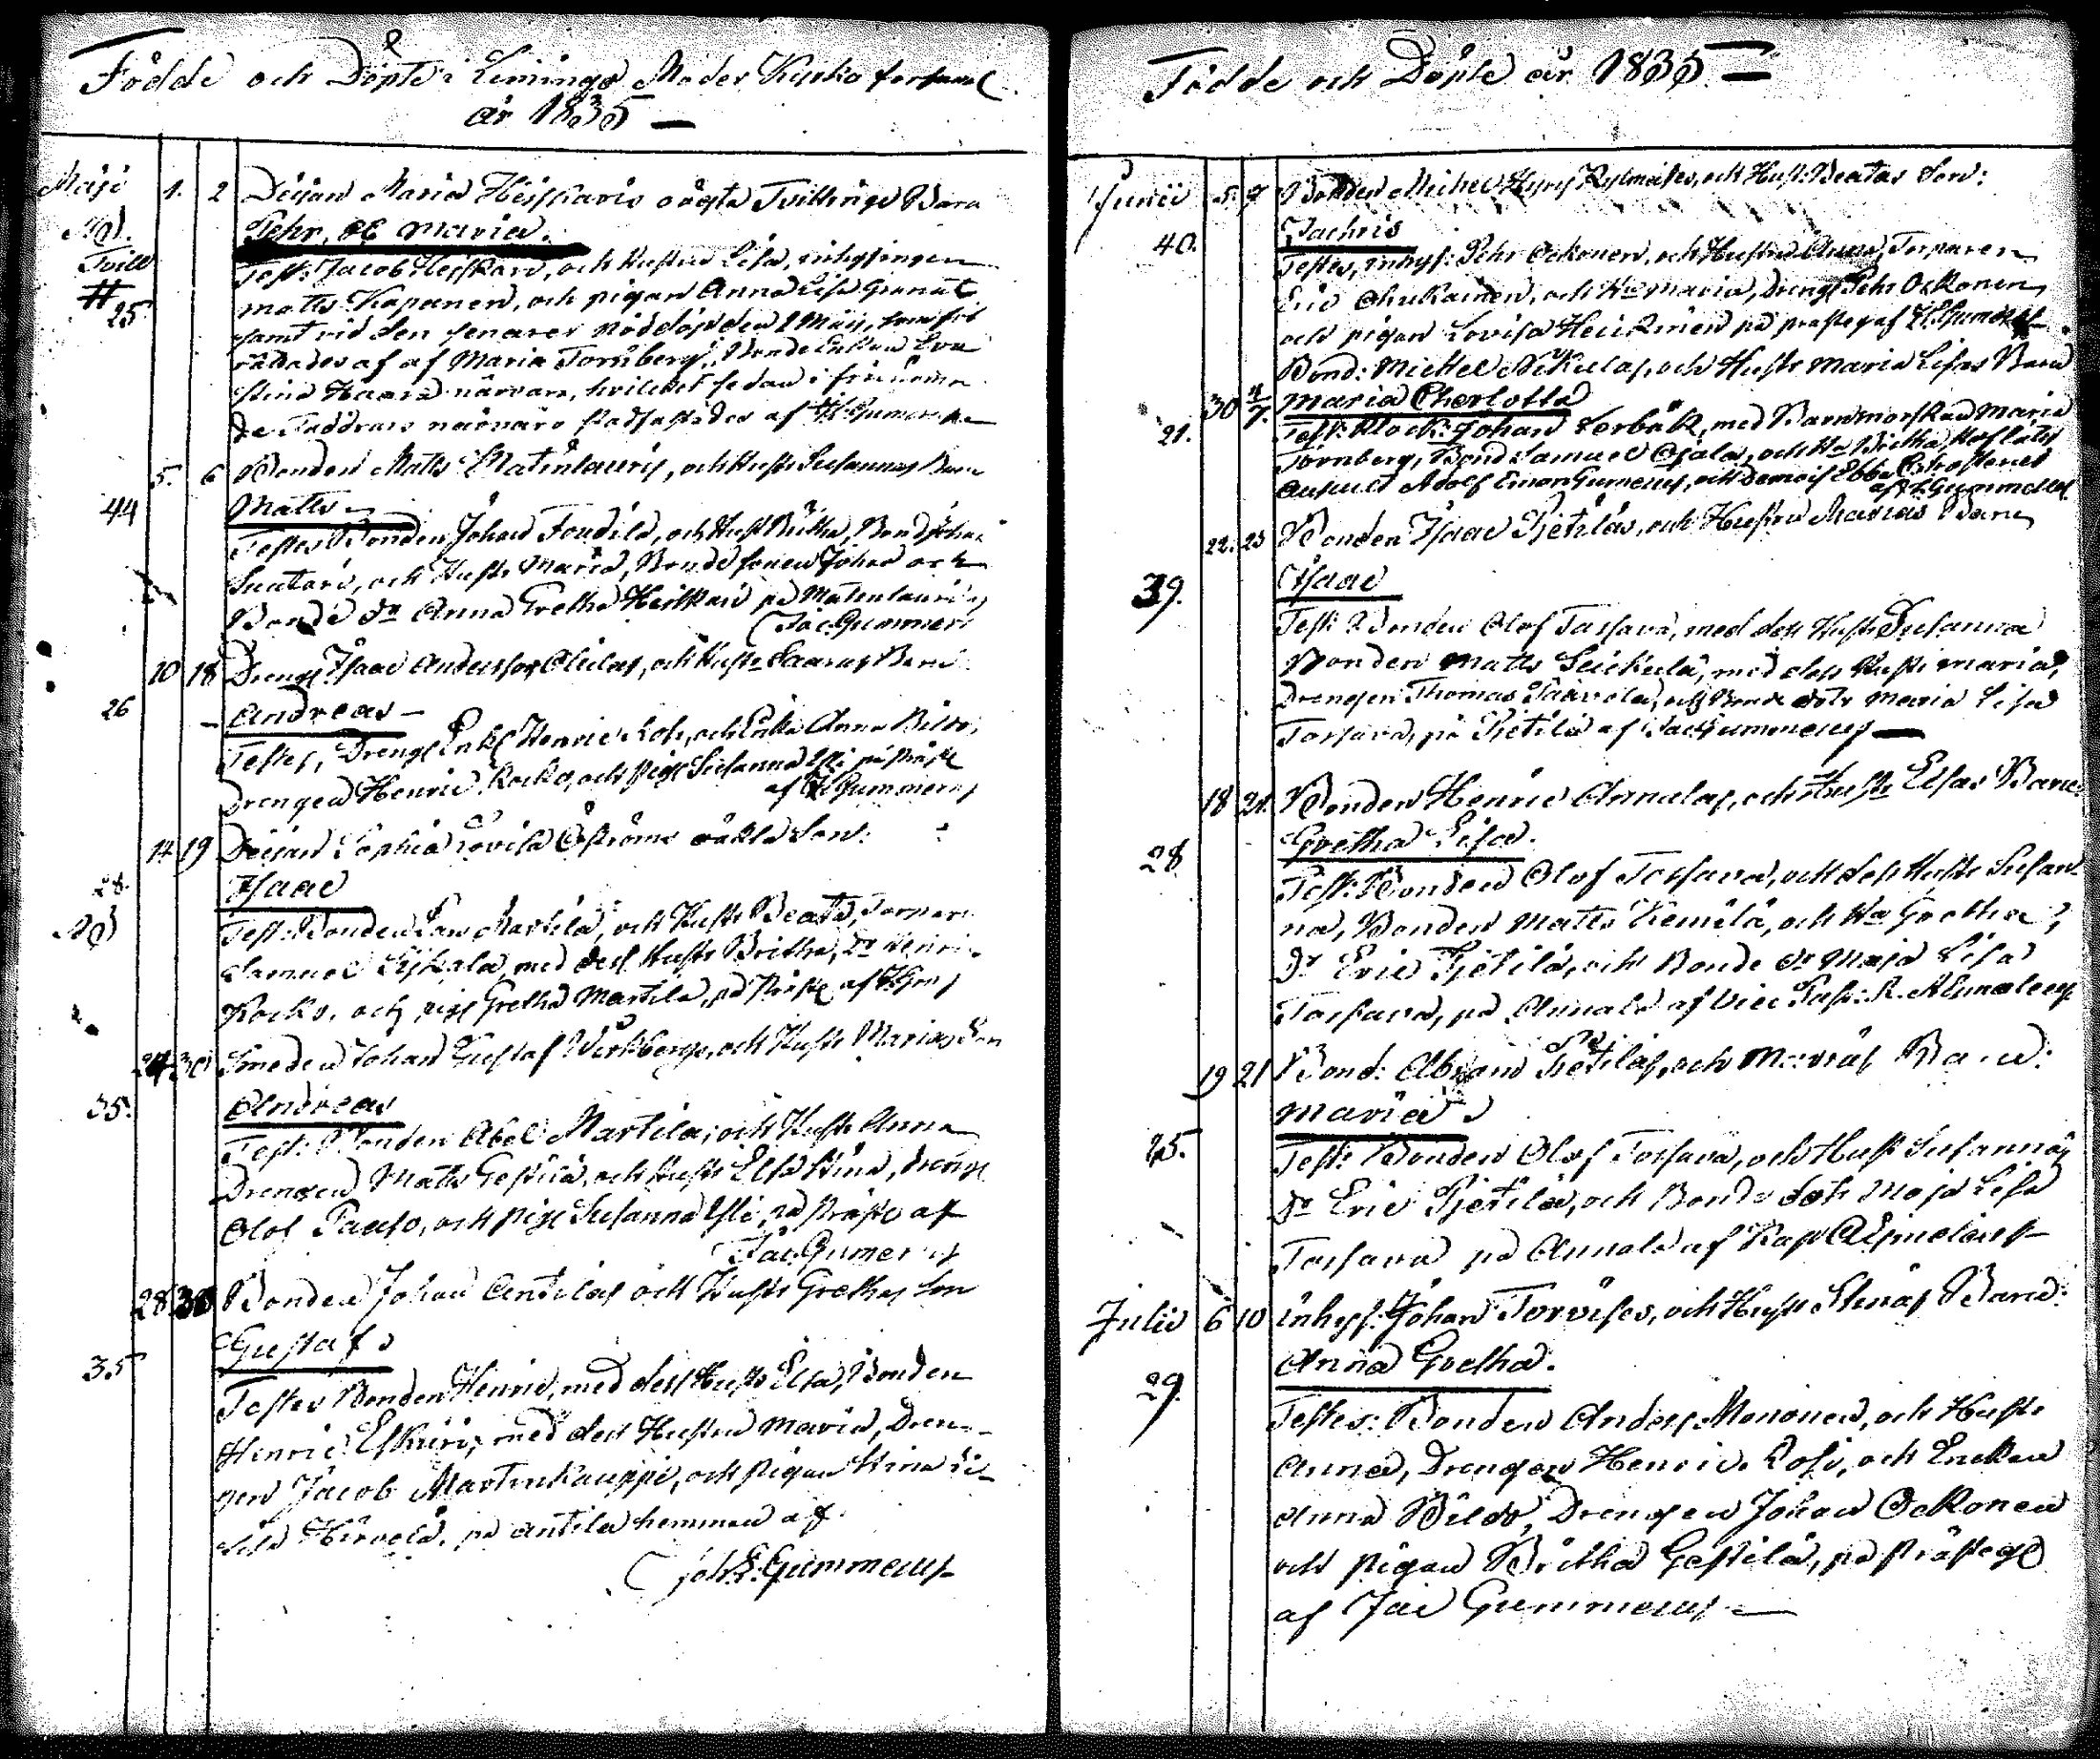 Födde och Döpte i Limingo Moder Kyrko forsaml
år 1835 —
Maji 1. 2 Deijan Maria Heiskaris oägta Tvillings Barn
Pehr, oc Maria.
25 Test: Jacob Heiskari, och Hustru Lisa, inhysingen
Matts Kapanen, och pigan Anna Lisa Granat
samt vid den senares nöddöp den 2 Maij, som för
rättades af af Maria Tornberg, Bonde Enkan
Stina närvaro, hvilket sedan i
de Faddrars närvaro stadfästades af Gumerus
5. 6 Bonden Matts Matinlauris, och Hustr Susannas Barn
44 Matts
Testes Bonden Johan Foudila, och Hust Britha, Bond Johan
Suutari, och Hustr Maria, Bondesonen Johan och
Bonde dr Anna Gretha Heikkari på Matinlauri af
Jac. Gummerus
10 18 Dreng Isaac Andersson Olilas, och Hustr Saaras Barn
26 — Andreas —
Testes, Dreng Enkl Henric Losi, och Enka Anna Bildo,
Drengen Henric Rocko, och Pig Susanna Ylli på Präst
af Gummerus
14 19 Deijan Sophia Lovisa Öströms oäkta Son:
28. Isaac
Test: Bonden Lars Martila, och Hustr Beata, Torparen
Samuel med dess Hustr Britha, Dr Henric
Rocko, och pig Gretha Martila, på Präst af
24 30 Smeden Johan Gustaf Wirkbergs, och Hustr Marias Son
35. Andreas
Test: Bonden Abel Martila, och Hustr Anna
Drengen Matts Gestilä, och Hustr Elsa Stina, dreng
Olof Paaso, och pig Susanna Ylli på Präste af
Jac. Gumerus
28 30 Bonden Johan Antilas och Hustr Grethas Son
35 Gustaf
Testes Bonden Henric, med dess Hustr Elsa, Bonden
Henric Eskuri, med dess Hustru Maria, Dren-
gen Jacob Martinkauppi, och pigan Stina Li-
sa Hirvelä, på Antila hemman af
Joh. E. Gummerus
Födde och Döpte år 1835 —
Junii 5. 7 Bonden Michel Hyry Kylmäises, och Hust: Beatas Son:
40. Zachris
Testes, inhys: Pehr Ockonen, och Hustru Anna, Torparen
Eric Ohukainen, och Ha Maria, Dreng Pehr Ockonen
och pigan Lovisa Heickinen på prästeg af
Bond: Michel Nikulas, och Hustr Maria Lisas Barn
30 4/7. Maria Charlotta
21. Test: Klock: Johan Lerbäk, med Barnmorskan Maria
Tornberg, Bond Samuel Ojala, och Ha Britha,
Adolf Einar Gumerus, och Demois Ebba
af Gummerus
22. 23 Bonden Isaac Pietiläs, och Hustru Marias Barn
39. Isaac
Test: Bonden Olof Tassava, med dess Hustr Susanna
Bonden Matts Leickula, med dess Hustr Maria,
Drengen Thomas Paavola, och Bonde dotr Maria Lisa
Tassava, på Pietilä af Jac Gummerus —
18 21. Bonden Henric Annalas, och Hustr Elsas Barn
28 Gretha Lisa.
Test: Bonden Olof Tassava, och dess Hustr Susan
na, Bonden Matts Kemilä, och Ha Gretha,
Dr Eric Pietilä, och Bonde dr Maja Lisa
Tassava, på Annala af Vice Past: R.
19 21 Bond: Abram Pietiläs, och Marias Barn:
25. Maria
Test: Bonden Olof Tassava, och Hust Susanna,
Dr Eric Pietilä, och Bonde dotr Maja Lisa
Tassava på Annala af Kap
Julii 6 10 Inhys: Johan Torvises, och Hustr Elinas Barn:
29. Anna Gretha.
Testes: Bonden Anders Mononen, och Hustr
Anna, Drengen Henric Losi, och Enckan
Anna Bildo, Drengen Johan Ockonen
och pigan Britha Gestilä, på prästeg
af Jac Gummerus —